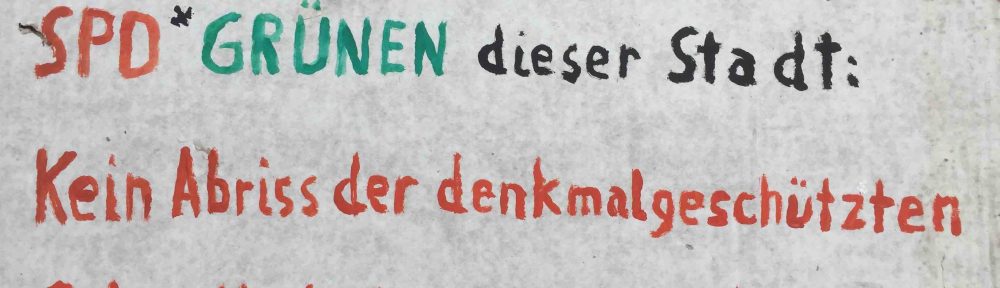 SPD*GRÜNEN dieser Stadt:
Kein Abriss der denkmalgeschützten